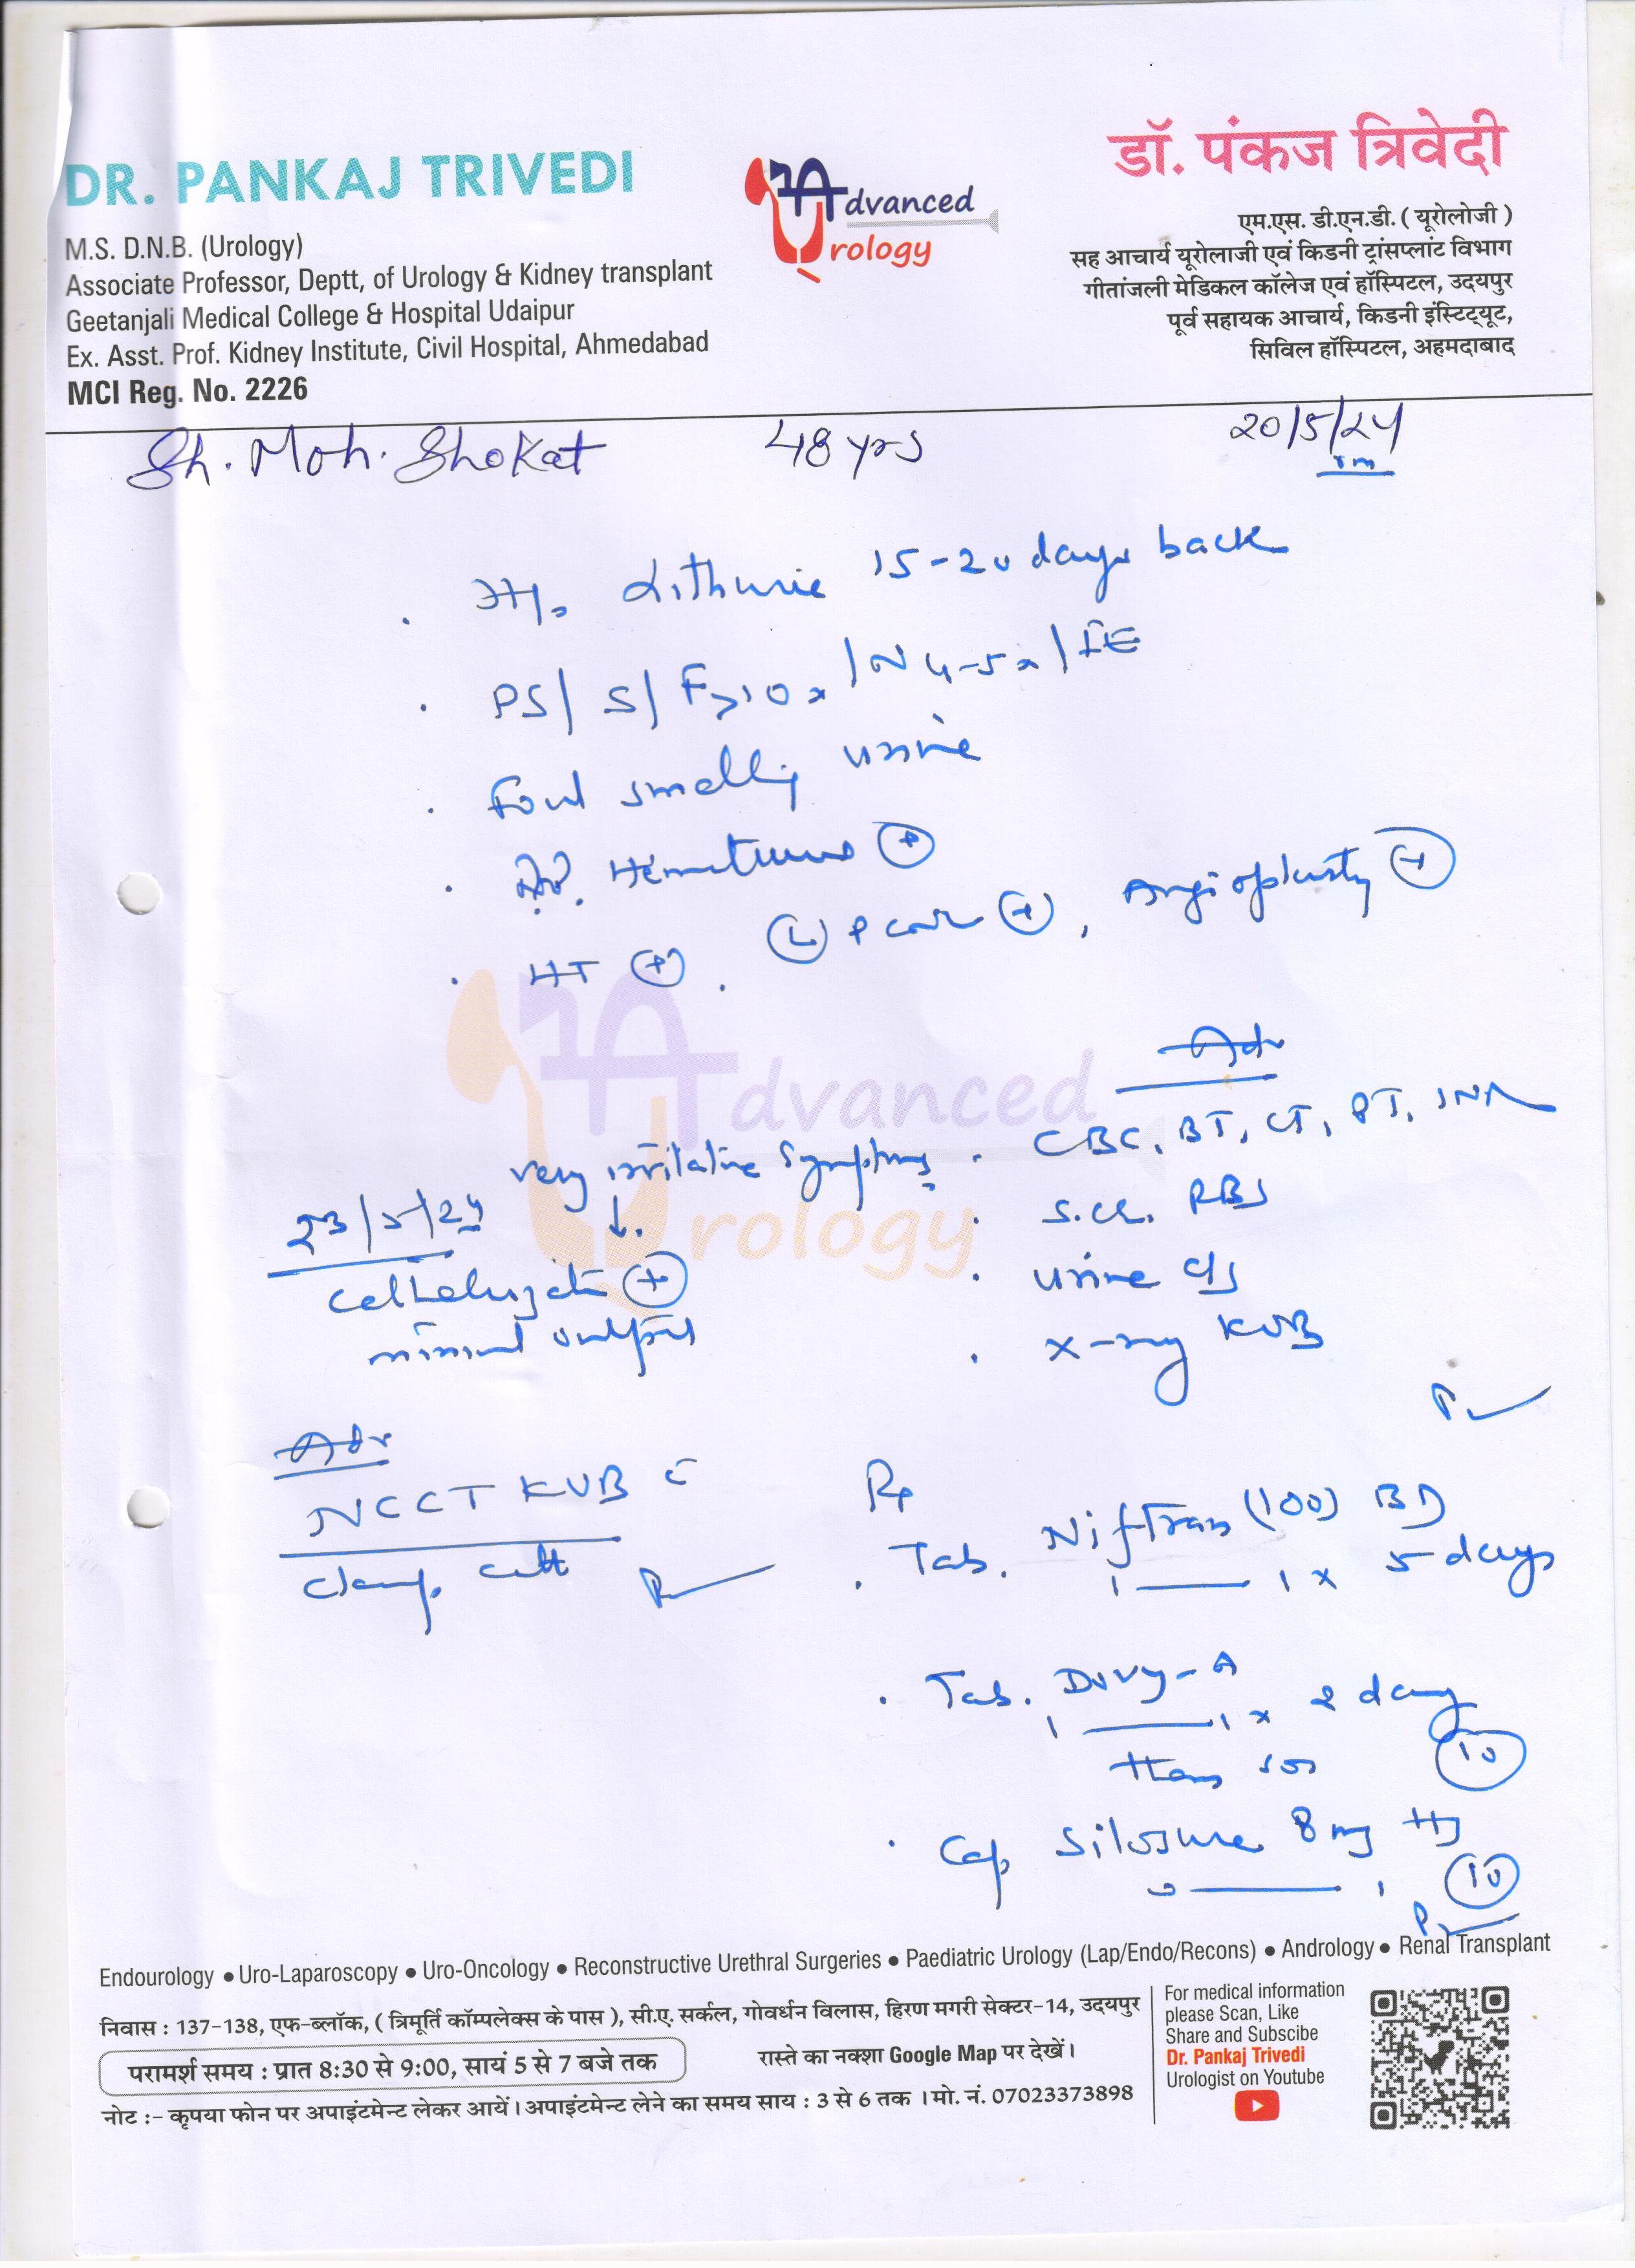 DR. PANKAJ TRIVEDI
M.S. D.N.B. (Urology)
Associate Professor, Deptt, of Urology & Kidney transplant
Geetanjali Medical College & Hospital Udaipur
Ex. Asst. Prof. Kidney Institute, Civil Hospital, Ahmedabad
MCI Reg. No. 2226
Advanced
Urology
डॉ. पंकज त्रिवेदी
एम.एस. डी.एन.डी. ( यूरोलोजी )
सह आचार्य यूरोलाजी एवं किडनी ट्रांसप्लांट विभाग
गीतांजली मेडिकल कॉलेज एवं हॉस्पिटल, उदयपुर
पूर्व सहायक आचार्य, किडनी इंस्टिट्यूट,
सिविल हॉस्पिटल, अहमदाबाद
Sh. Moh. Shokat 48 yrs 20/5/24
H/o Lithurie 15-20 days back
PS/ S/ F>10x /N 4-5x /IE
Foul smelly urine
Hematuria +
HT +, (L) +, Angioplasty +
Adv
CBC, BT, CT, PT, INR
S.Cr. RBS
urine C/S
X-ray KUB
very irritative symptoms
23/5/24
↓
Catheterization +
minimal output
Adv
NCCT KUB c̄
clamp cath
Rx
Tab. Niftran (100) BD
1 — 1 x 5 days
Tab. -A
1 — 1 x 2 day
then sos 10
Cap Silosure 8 mg HS
0 — 1 10
Advanced
Urology
Endourology ● Uro-Laparoscopy ● Uro-Oncology ● Reconstructive Urethral Surgeries ● Paediatric Urology (Lap/Endo/Recons) ● Andrology ● Renal Transplant
निवास : 137-138, एफ-ब्लॉक, ( त्रिमूर्ति कॉम्पलेक्स के पास ), सी.ए. सर्कल, गोवर्धन विलास, हिरण मगरी सेक्टर-14, उदयपुर
परामर्श समय : प्रात 8:30 से 9:00, सायं 5 से 7 बजे तक
रास्ते का नक्शा Google Map पर देखें।
नोट :- कृपया फोन पर अपाइंटमेन्ट लेकर आयें। अपाइंटमेन्ट लेने का समय साय : 3 से 6 तक । मो. नं. 07023373898
For medical information
please Scan, Like
Share and Subscibe
Dr. Pankaj Trivedi
Urologist on Youtube